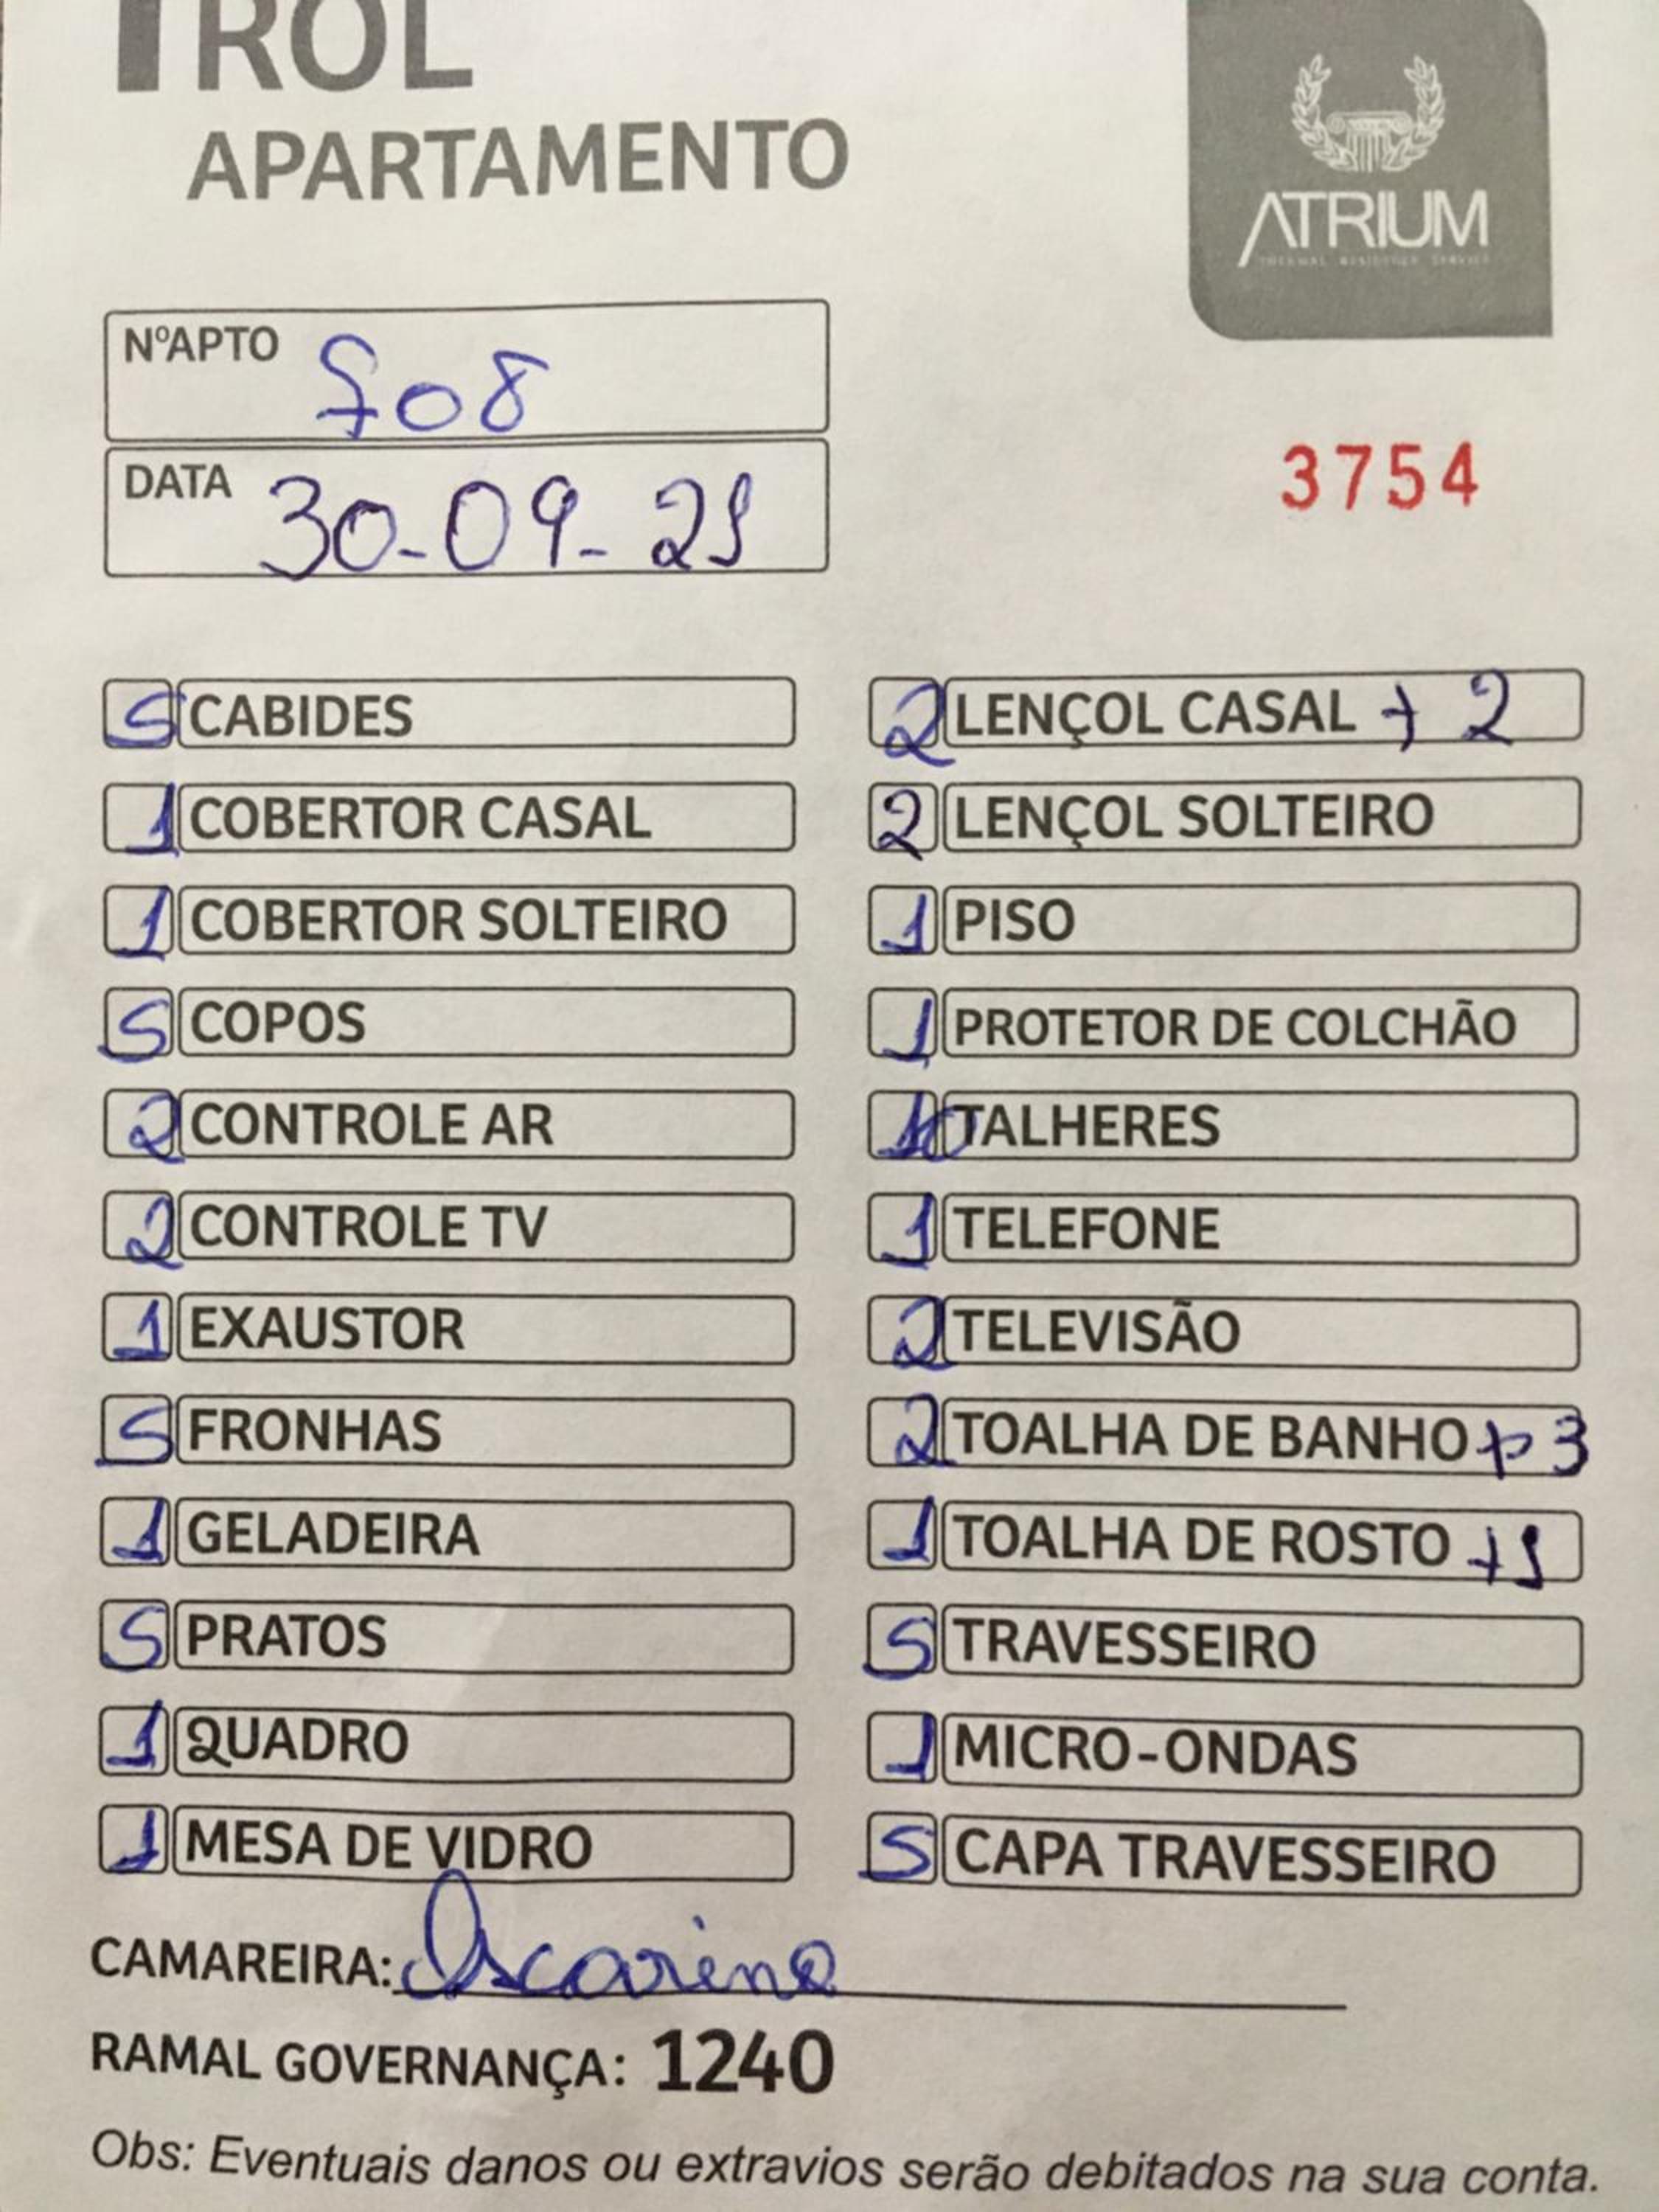 ROL
APARTAMENTO
ATRIUM
THERMAL RESIDENCE SERVICE
NºAPTO 708
DATA 30-09-21
3754
5 CABIDES
1 COBERTOR CASAL
1 COBERTOR SOLTEIRO
5 COPOS
2 CONTROLE AR
2 CONTROLE TV
1 EXAUSTOR
5 FRONHAS
1 GELADEIRA
5 PRATOS
1 QUADRO
1 MESA DE VIDRO
2 LENÇOL CASAL + 2
2 LENÇOL SOLTEIRO
1 PISO
1 PROTETOR DE COLCHÃO
10 TALHERES
1 TELEFONE
2 TELEVISÃO
2 TOALHA DE BANHO + 3
1 TOALHA DE ROSTO +1
5 TRAVESSEIRO
1 MICRO-ONDAS
5 CAPA TRAVESSEIRO
CAMAREIRA:
RAMAL GOVERNANÇA: 1240
Obs: Eventuais danos ou extravios serão debitados na sua conta.